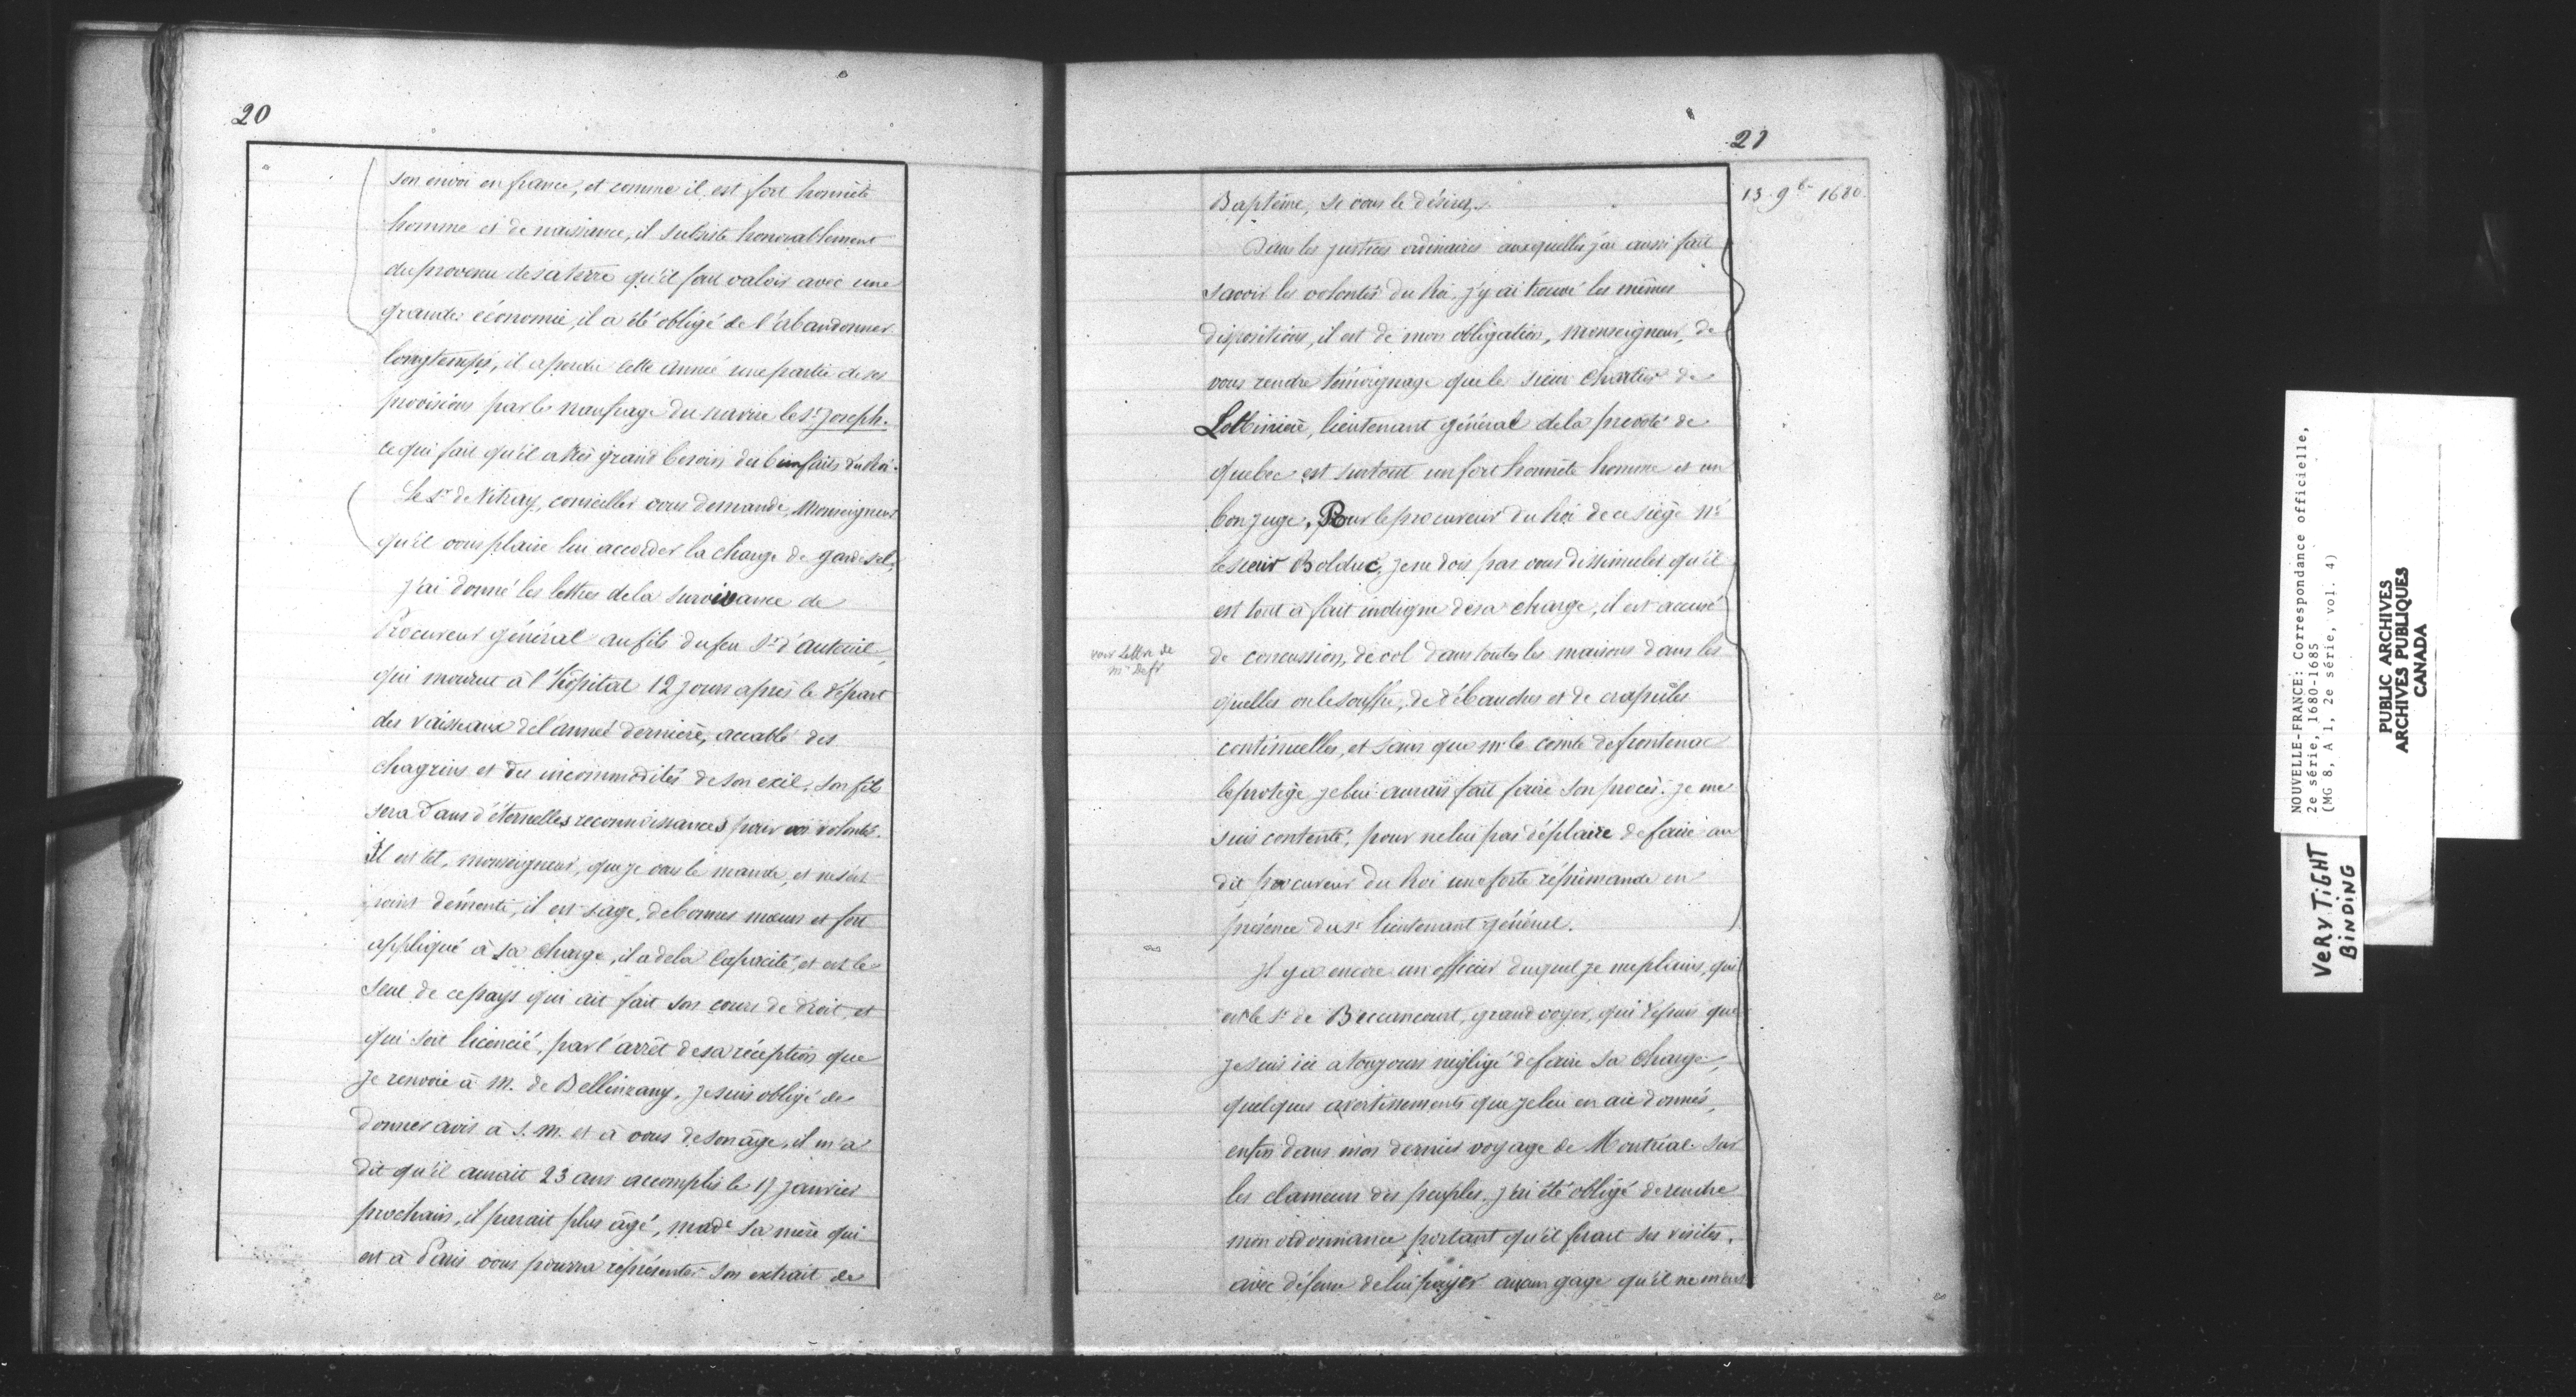 20
son envoi en france, et comme il est fort honnête
homme et de naissance, il subsiste honorablement
du provenu de sa terre qu'il fait valoir avec une
grande économie, il a été obligé de l'abandonner
longtemps, il a perdu cette année une partie de ses
provisions par le naufrage du navire le St Joseph.
ce qui fait qu'il a très grand besoin des bienfaits du Roi.
Le Sr de Vitray, conseiller vous demande, Monseigneur
qu'il vous plaise lui accorder la charge de garde scel,
J'ai donné les lettres de la survivance de
Procureur général au fils du feu Sr d'auteuil,
qui mourut à l'Hôpital 12 jours après le départ
des vaisseaux de l'année dernière, accablé des
chagrins et des incommodités de son exil, son fils
sera dans d'éternelles reconnoissances pour vos volontés.
Il est tel, monseigneur, que je vous le mande, et ne s'est
point démenti, il est sage, de bonnes mœurs et fort
appliqué à sa charge, il a de la capacité, et est le
seul de ce pays qui ait fait son cours de droit, et
qui soit licencié, par l'arrêt de sa réception que
Je renvoie à M. de Bellinzany, je suis obligé de
donner avis à S. M. et à vous de son âge, il m'a
dit qu'il aurait 23 ans accomplis le 17 janvier
prochain, il parait plus âgé, made sa mère qui
est à Paris vous pourra représenter son extrait de
21
13. 9b. 1680.
Baptême, si vous le désirez.
Dans les justices ordinaires auxquelles j'ai aussi fait
savoir les volontés du Roi, j'y ai trouvé les mêmes
dispositions, il est de mon obligation, Monseigneur, de
vous rendre témoignage que le sieur Chartier de
Lotbinière, lieutenant général de la prevôté de
quebec est surtout un fort honnête homme et un
bon juge. Pour le procureur du Roi de ce siège Mr
le sieur Bolduc, je ne dois pas vous dissimuler qu'il
est tout à fait indigne de sa charge, il est accusé
voir lettre de
Mr Defr
de concussion, de vol dans toutes les maisons dans les
quelles on le souffre, de débauches et de crapules
continuelles, et sans que Mr le comte de frontenac
le protège je lui aurais fait faire son procès. je me
suis contenté, pour ne lui pas déplaire de faire au
dit procureur du Roi une forte réprimande en
présence du Sr lieutenant général.
Il y a encore un officier duquel je me plains, qui
est le Sr de Beccancourt, grand voyer, qui depuis que
je suis ici a toujours négligé de faire sa charge,
quelques avertissements que je lui en aie donnés,
enfin dans mon dernier voyage de Montréal sur
les clameurs des peuples, j'ai été obligé de rendre
mon ordonnance portant qu'il ferait ses visites,
avec défense de lui payer aucun gage qu'il ne m'eut
NOUVELLE-FRANCE: Correspondance officielle,
2e série, 1680-1685
(MG 8, A 1, 2e série, vol. 4)
PUBLIC ARCHIVES
ARCHIVES PUBLIQUES
CANADA
VERY TIGHT
BINDING